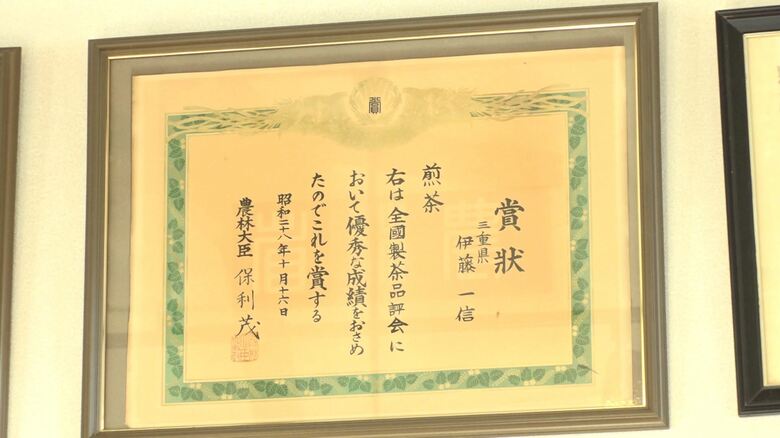 賞
賞状
三重県
伊藤一信
煎茶
右は全國製茶品評会に
おいて優秀な成績をおさめ
たのでこれを賞する
昭和二十八年十月十六日
農林大臣 保利茂